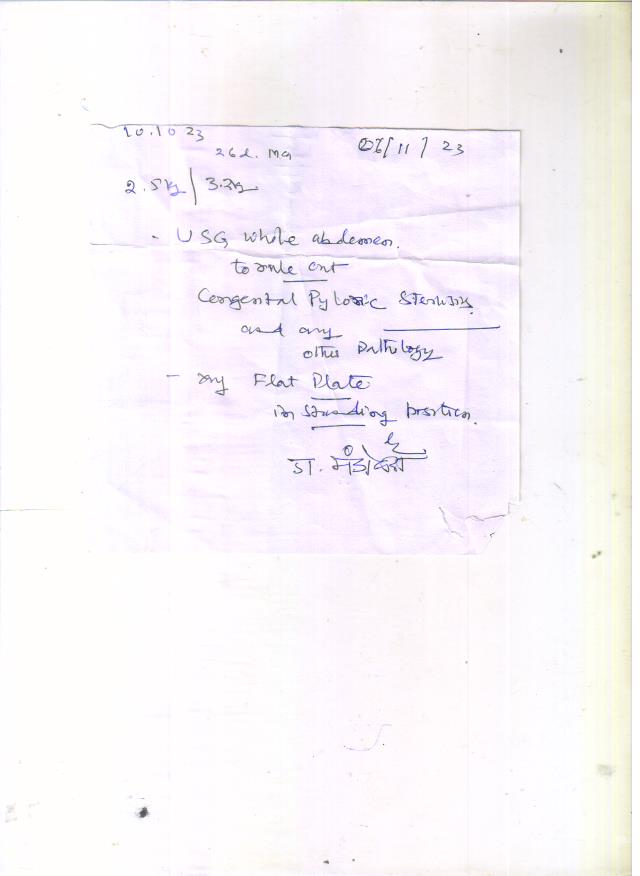 10.10 23
26d.
11 / 23
2.5kg / 3.2kg
- USG whole abdomen.
to rule out
Congental Pyloric Stenosis.
and any
other Pathology
- Flat Plate
in standing position.
डा.